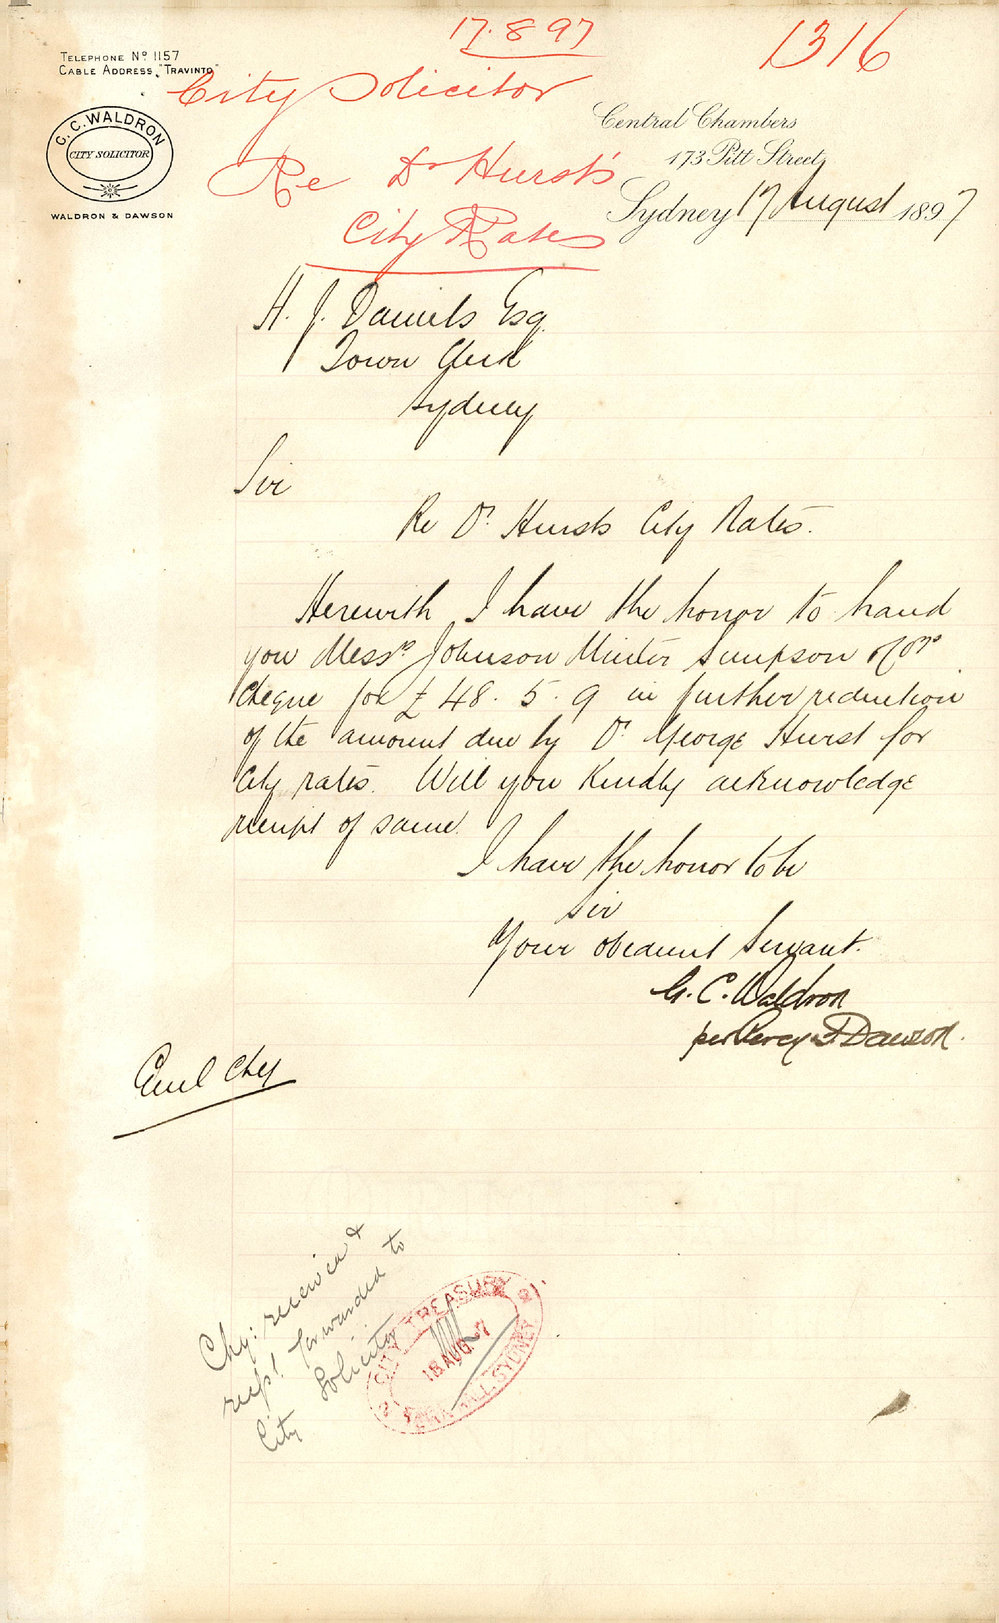 17.8 97
1316
TELEPHONE Nº 1157
CABLE ADDRESS, "TRAVINTO"
City Solicitor
G. C. WALDRON
CITY SOLICITOR
WALDRON & DAWSON
Central Chambers
173 Pitt Street,
Re Dr Hurst's
Sydney 17 August 1897
City Rates
H. J. Daniels Esq.
Town Clerk
Sydney
Sir
Re Dr. Hursts City Rates.
Herewith I have the honor to hand
you Messrs. Johnson Minter Simpson & Co's
cheque for £48. 5. 9 in further reduction
of the amount due by Dr. George Hurst for
City rates. Will you kindly acknowledge
receipt of same.
I have the honor to be
Sir
Your obedient Servant.
G. C. Waldron
per Percy Dawson.
Encl Chq
Chq: received &
recpt forwarded to
City Solicitor
CITY TREASURY
18 AUG 97
TOWN HALL, SYDNEY